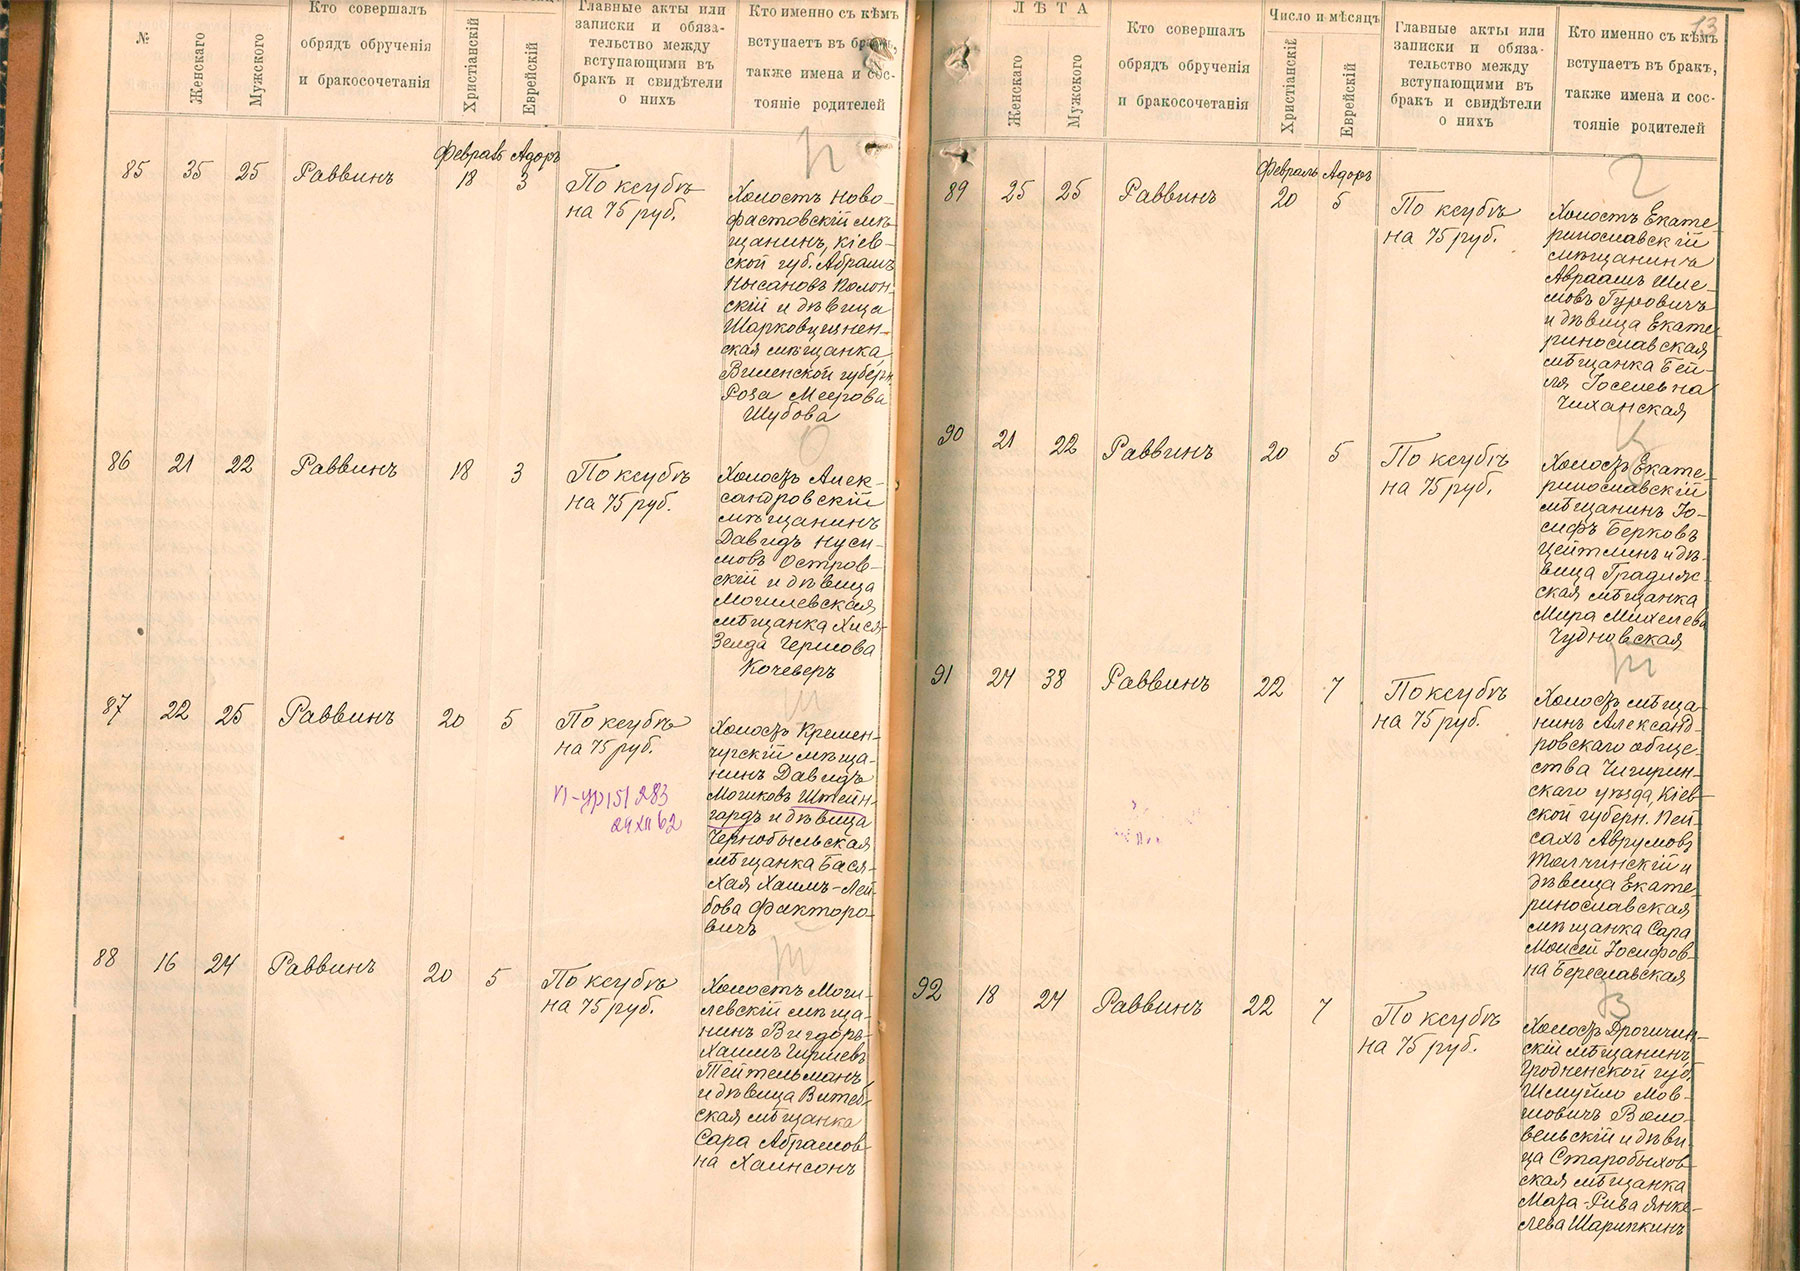 №
Женскаго
Мужского
Кто совершалъ
обрядъ обрученія
и бракосочетанія
Христіанскій
Еврейскій
Главные акты или
записки и обяза-
тельство между
вступающими въ
бракъ и свидѣтели
о нихъ
Кто именно съ кѣмъ
вступаетъ въ бракъ,
также имена и сос-
тояніе родителей
85 35 25 Раввинъ
Февраль Адоръ
18 3
По ксубѣ
на 75 руб.
Холостъ Ново-
фастовскій мѣ-
щанинъ, Кіев-
ской губ. Абрамъ
Нысановъ Полон-
скій и дѣвица
Шарковщизнен-
ская мѣщанка
Виленской губерн.
Роза Меерова
Шубова
86 21 22 Раввинъ 18 3
По ксубѣ
на 75 руб.
Холостъ Алек-
сандровскій
мѣщанинъ
Давидъ Нуси-
мовъ Остров-
скій и дѣвица
Могилевская
мѣщанка Хися-
Зелда Гершова
Кочеверъ
87 22 25 Раввинъ 20 5
По ксубѣ
на 75 руб.
Холостъ Кремен-
чугскій мѣща-
нинъ Давидъ
Мошковъ Штейн-
гардъ и дѣвица
Чернобыльская
мѣщанка Бася-
Хая Хаимъ-Лей-
бова Факторо-
вичъ
88 16 24 Раввинъ 20 5
По ксубѣ
на 75 руб.
Холостъ Моги-
левскій мѣща-
нинъ Вигдоръ-
Хаимъ Гиршевъ
Тейтельманъ
и дѣвица Витеб-
ская мѣщанка
Сара Абрамов-
на Хаинсонъ
13
ЛѢТА
Женскаго
Мужского
Кто совершалъ
обрядъ обрученія
и бракосочетанія
Число и мѣсяцъ
Христіанскій
Еврейскій
Главные акты или
записки и обяза-
тельство между
вступающими въ
бракъ и свидѣтели
о нихъ
Кто именно съ кѣмъ
вступаетъ въ бракъ,
также имена и сос-
тояніе родителей
89 25 25 Раввинъ
Февраль Адоръ
20 5
По ксубѣ
на 75 руб.
Холостъ Екате-
ринославскій
мѣщанинъ
Авраамъ Шле-
мовъ Гуровичъ
и дѣвица Екате-
ринославская
мѣщанка Бей-
ля Іоселевна
Чиханская
90 21 22 Раввинъ 20 5
По ксубѣ
на 75 руб.
Холостъ Екате-
ринославскій
мѣщанинъ Іо-
сифъ Берковъ
Цейтлинъ и дѣ-
вица Градиж-
ская мѣщанка
Мира Михелева
Чудновская
91 24 38 Раввинъ 22 7
По ксубѣ
на 75 руб.
Холостъ мѣща-
нинъ Александ-
ровскаго обще-
ства Чигирин-
скаго уѣзда, Кіев-
ской губерн. Пей-
сахъ Аврумовъ
Толчинскій и
дѣвица Екате-
ринославская
мѣщанка Сара
Моисей Іосифов-
на Береславская
92 18 24 Раввинъ 22 7
По ксубѣ
на 75 руб.
Холостъ Дрогичин-
скій мѣщанинъ
Гродненской губ.
Шмуйло Мов-
шовичъ Воло-
вельскій и дѣви-
ца Старобыхов-
ская мѣщанка
Маза-Рива Янке-
лева Шарипкинъ